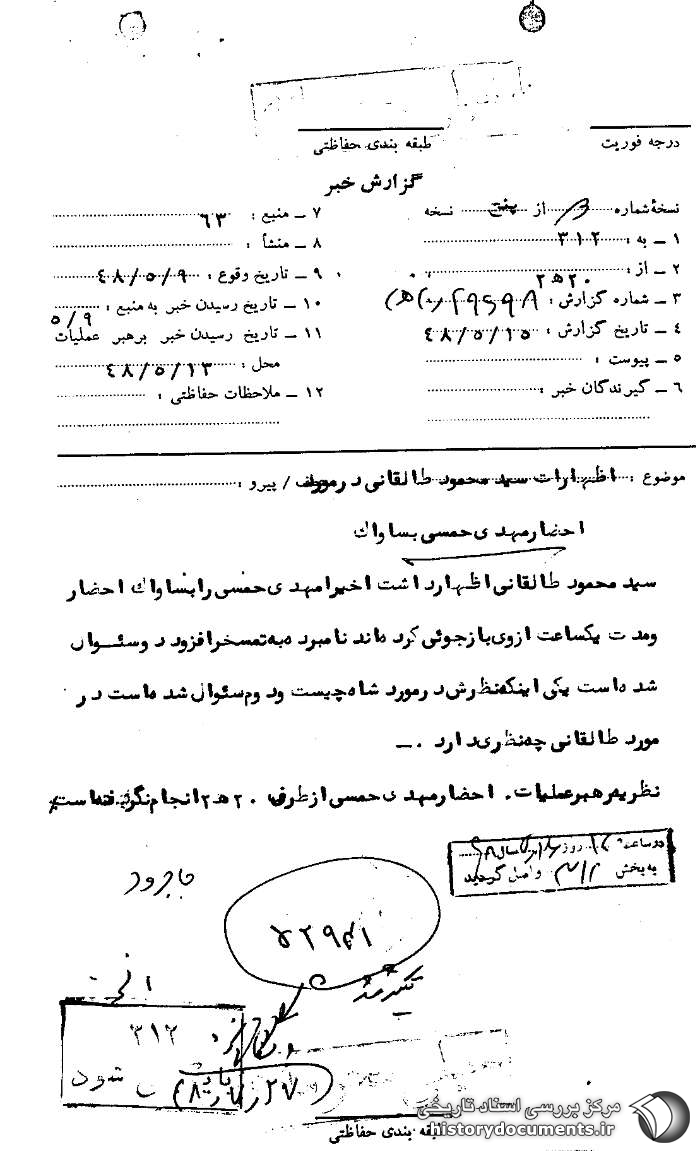 درجه فوریت
طبقه بندی حفاظتی
گزارش خبر
نسخهٔ شماره از نسخه
۱ ـ به : ۳۱۲
۲ ـ از : ۲۰ ه ۲
۳ ـ شماره گزارش :
۴ ـ تاریخ گزارش : ۴۸/۵/۱۵
۵ ـ پیوست :
۶ ـ گیرندگان خبر :
۷ ـ منبع : ۶۳
۸ ـ منشأ :
۹ ـ تاریخ وقوع : ۴۸/۵/۹
۱۰ ـ تاریخ رسیدن خبر به منبع : ۵/۹
۱۱ ـ تاریخ رسیدن خبر برهبر عملیات
محل : ۴۸/۵/۱۳
۱۲ ـ ملاحظات حفاظتی :
موضوع : اظهارات سید محمود طالقانی در مورد / پیرو :
احضار مهدی حمسی بساواک
سید محمود طالقانی اظهار داشت اخیرا مهدی حمسی را بساواک احضار
ومدت یکساعت ازوی بازجوئی کرده اند نامبرده به تمسخر افزود دو سئوال
شده است یکی اینکه نظرش در مورد شاه چیست ودوم سئوال شده است در
مورد طالقانی چه نظری دارد . ـ
نظریه رهبر عملیات . احضار مهدی حمسی از طرف ۲۰ ه ۲ انجام نگرفته است
در ساعت روز
به بخش ۳۱۲ واصل گردید
۳۱۲
شود
طبقه بندی حفاظتی
مرکز بررسی اسناد تاریخی
historydocuments.ir